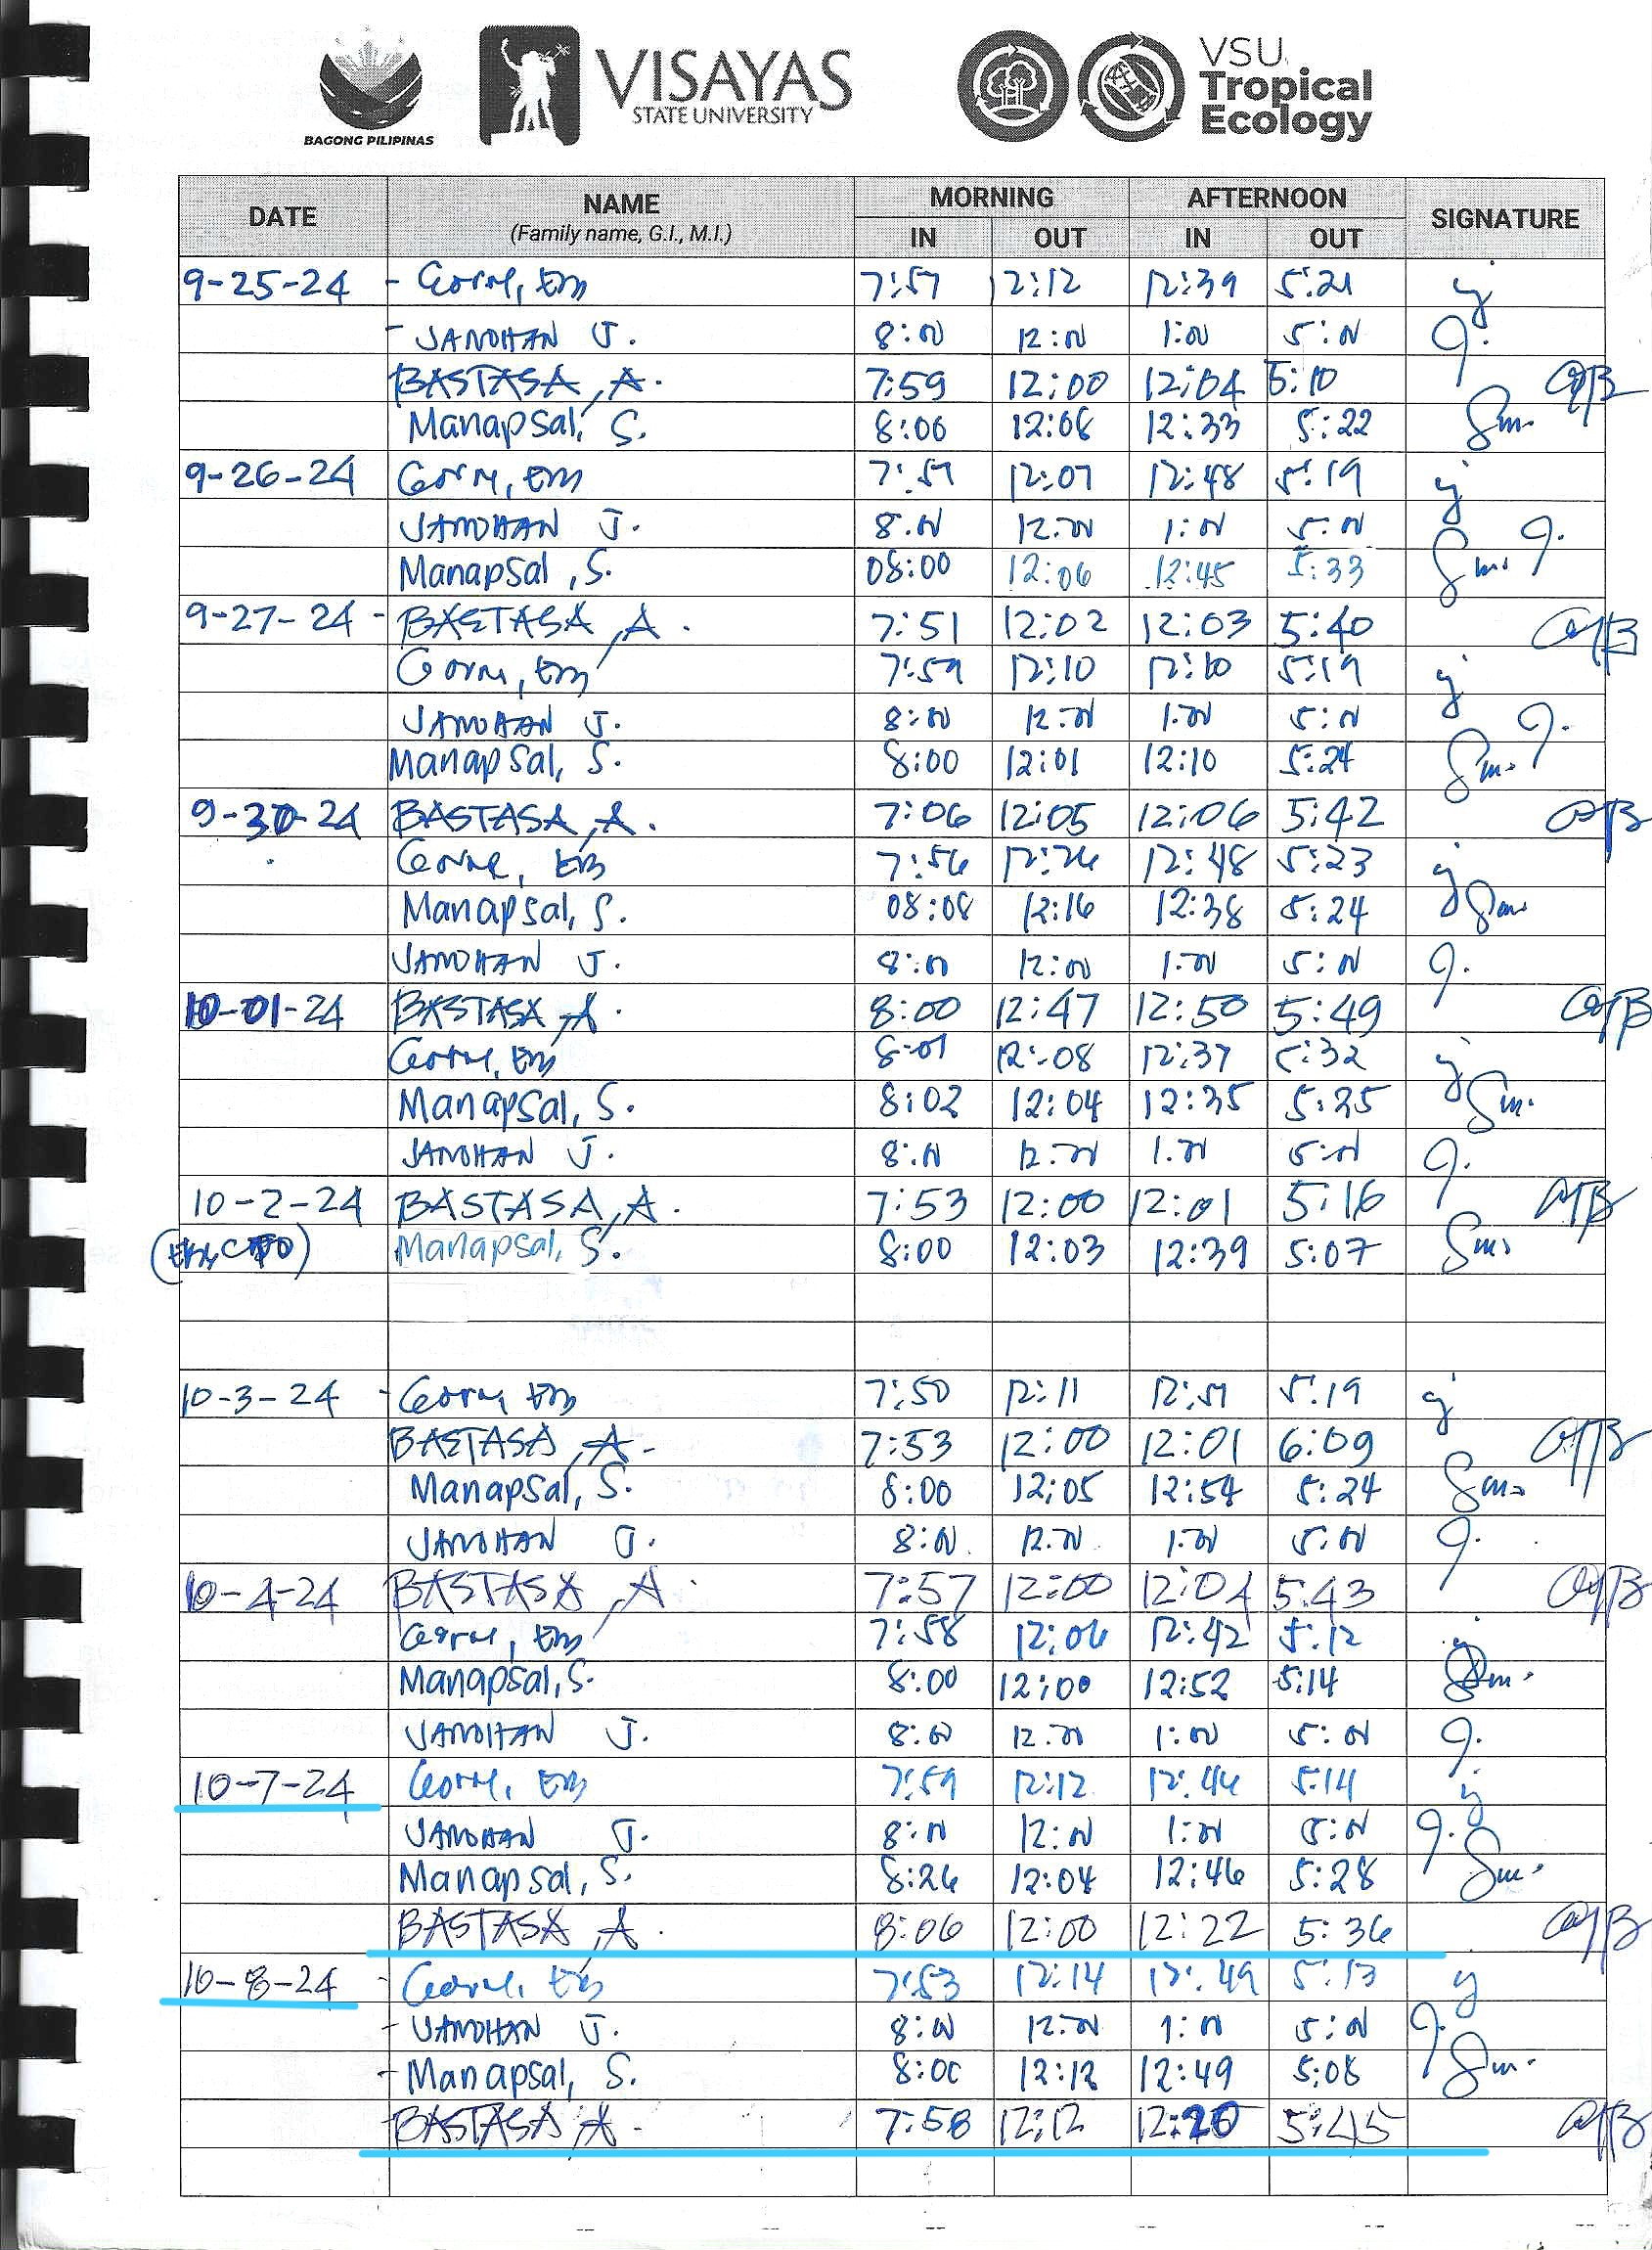 BAGONG PILIPINAS
VISAYAS
STATE UNIVERSITY
VSU
Tropical
Ecology
DATE NAME (Family name, G.I., M.I.) MORNING AFTERNOON SIGNATURE
IN OUT IN OUT
9-25-24 - 7:57 12:12 12:39 5:21
- JANDHAN J. 8:00 12:00 1:00 5:00
BASTASA, A. 7:59 12:00 12:04 5:10
Manapsal, S. 8:00 12:08 12:33 5:22 Sm.
9-26-24 7:57 12:07 12:48 5:19
JANDHAN J. 8:00 12:00 1:00 5:00
Manapsal, S. 08:00 12:06 12:45 5:33 Sm.
9-27-24 - BASTASA, A. 7:51 12:02 12:03 5:40
7:59 12:10 12:10 5:19
JANDHAN J. 8:00 12:00 1:00 5:00
Manapsal, S. 8:00 12:01 12:10 5:24 Sm.
9-30-24 BASTASA, A. 7:06 12:05 12:06 5:42
7:56 12:26 12:48 5:23
Manapsal, S. 08:08 12:16 12:38 5:24 Sm.
JANDHAN J. 8:00 12:00 1:00 5:00
10-01-24 BASTASA, A. 8:00 12:47 12:50 5:49
8:01 12:08 12:37 5:32
Manapsal, S. 8:02 12:04 12:35 5:25 Sm.
JANDHAN J. 8:00 12:00 1:00 5:00
10-2-24 BASTASA, A. 7:53 12:00 12:01 5:16
Manapsal, S. 8:00 12:03 12:39 5:07 Sm.
10-3-24 - 7:50 12:11 12:51 5:19
BASTASA, A. 7:53 12:00 12:01 6:09
Manapsal, S. 8:00 12:05 12:54 5:24 Sm.
JANDHAN J. 8:00 12:00 1:00 5:00
10-4-24 BASTASA, A. 7:57 12:00 12:04 5:43
7:58 12:06 12:42 5:12
Manapsal, S. 8:00 12:00 12:52 5:14 Sm.
JANDHAN J. 8:00 12:00 1:00 5:00
10-7-24 7:59 12:12 12:46 5:14
JANDHAN J. 8:00 12:00 1:00 5:00
Manapsal, S. 8:26 12:04 12:46 5:28 Sm.
BASTASA, A. 8:06 12:00 12:22 5:36
10-8-24 - 7:53 12:14 12:49 5:13
- JANDHAN J. 8:00 12:00 1:00 5:00
- Manapsal, S. 8:00 12:12 12:49 5:08 Sm.
- BASTASA, A. 7:58 12:12 12:20 5:45